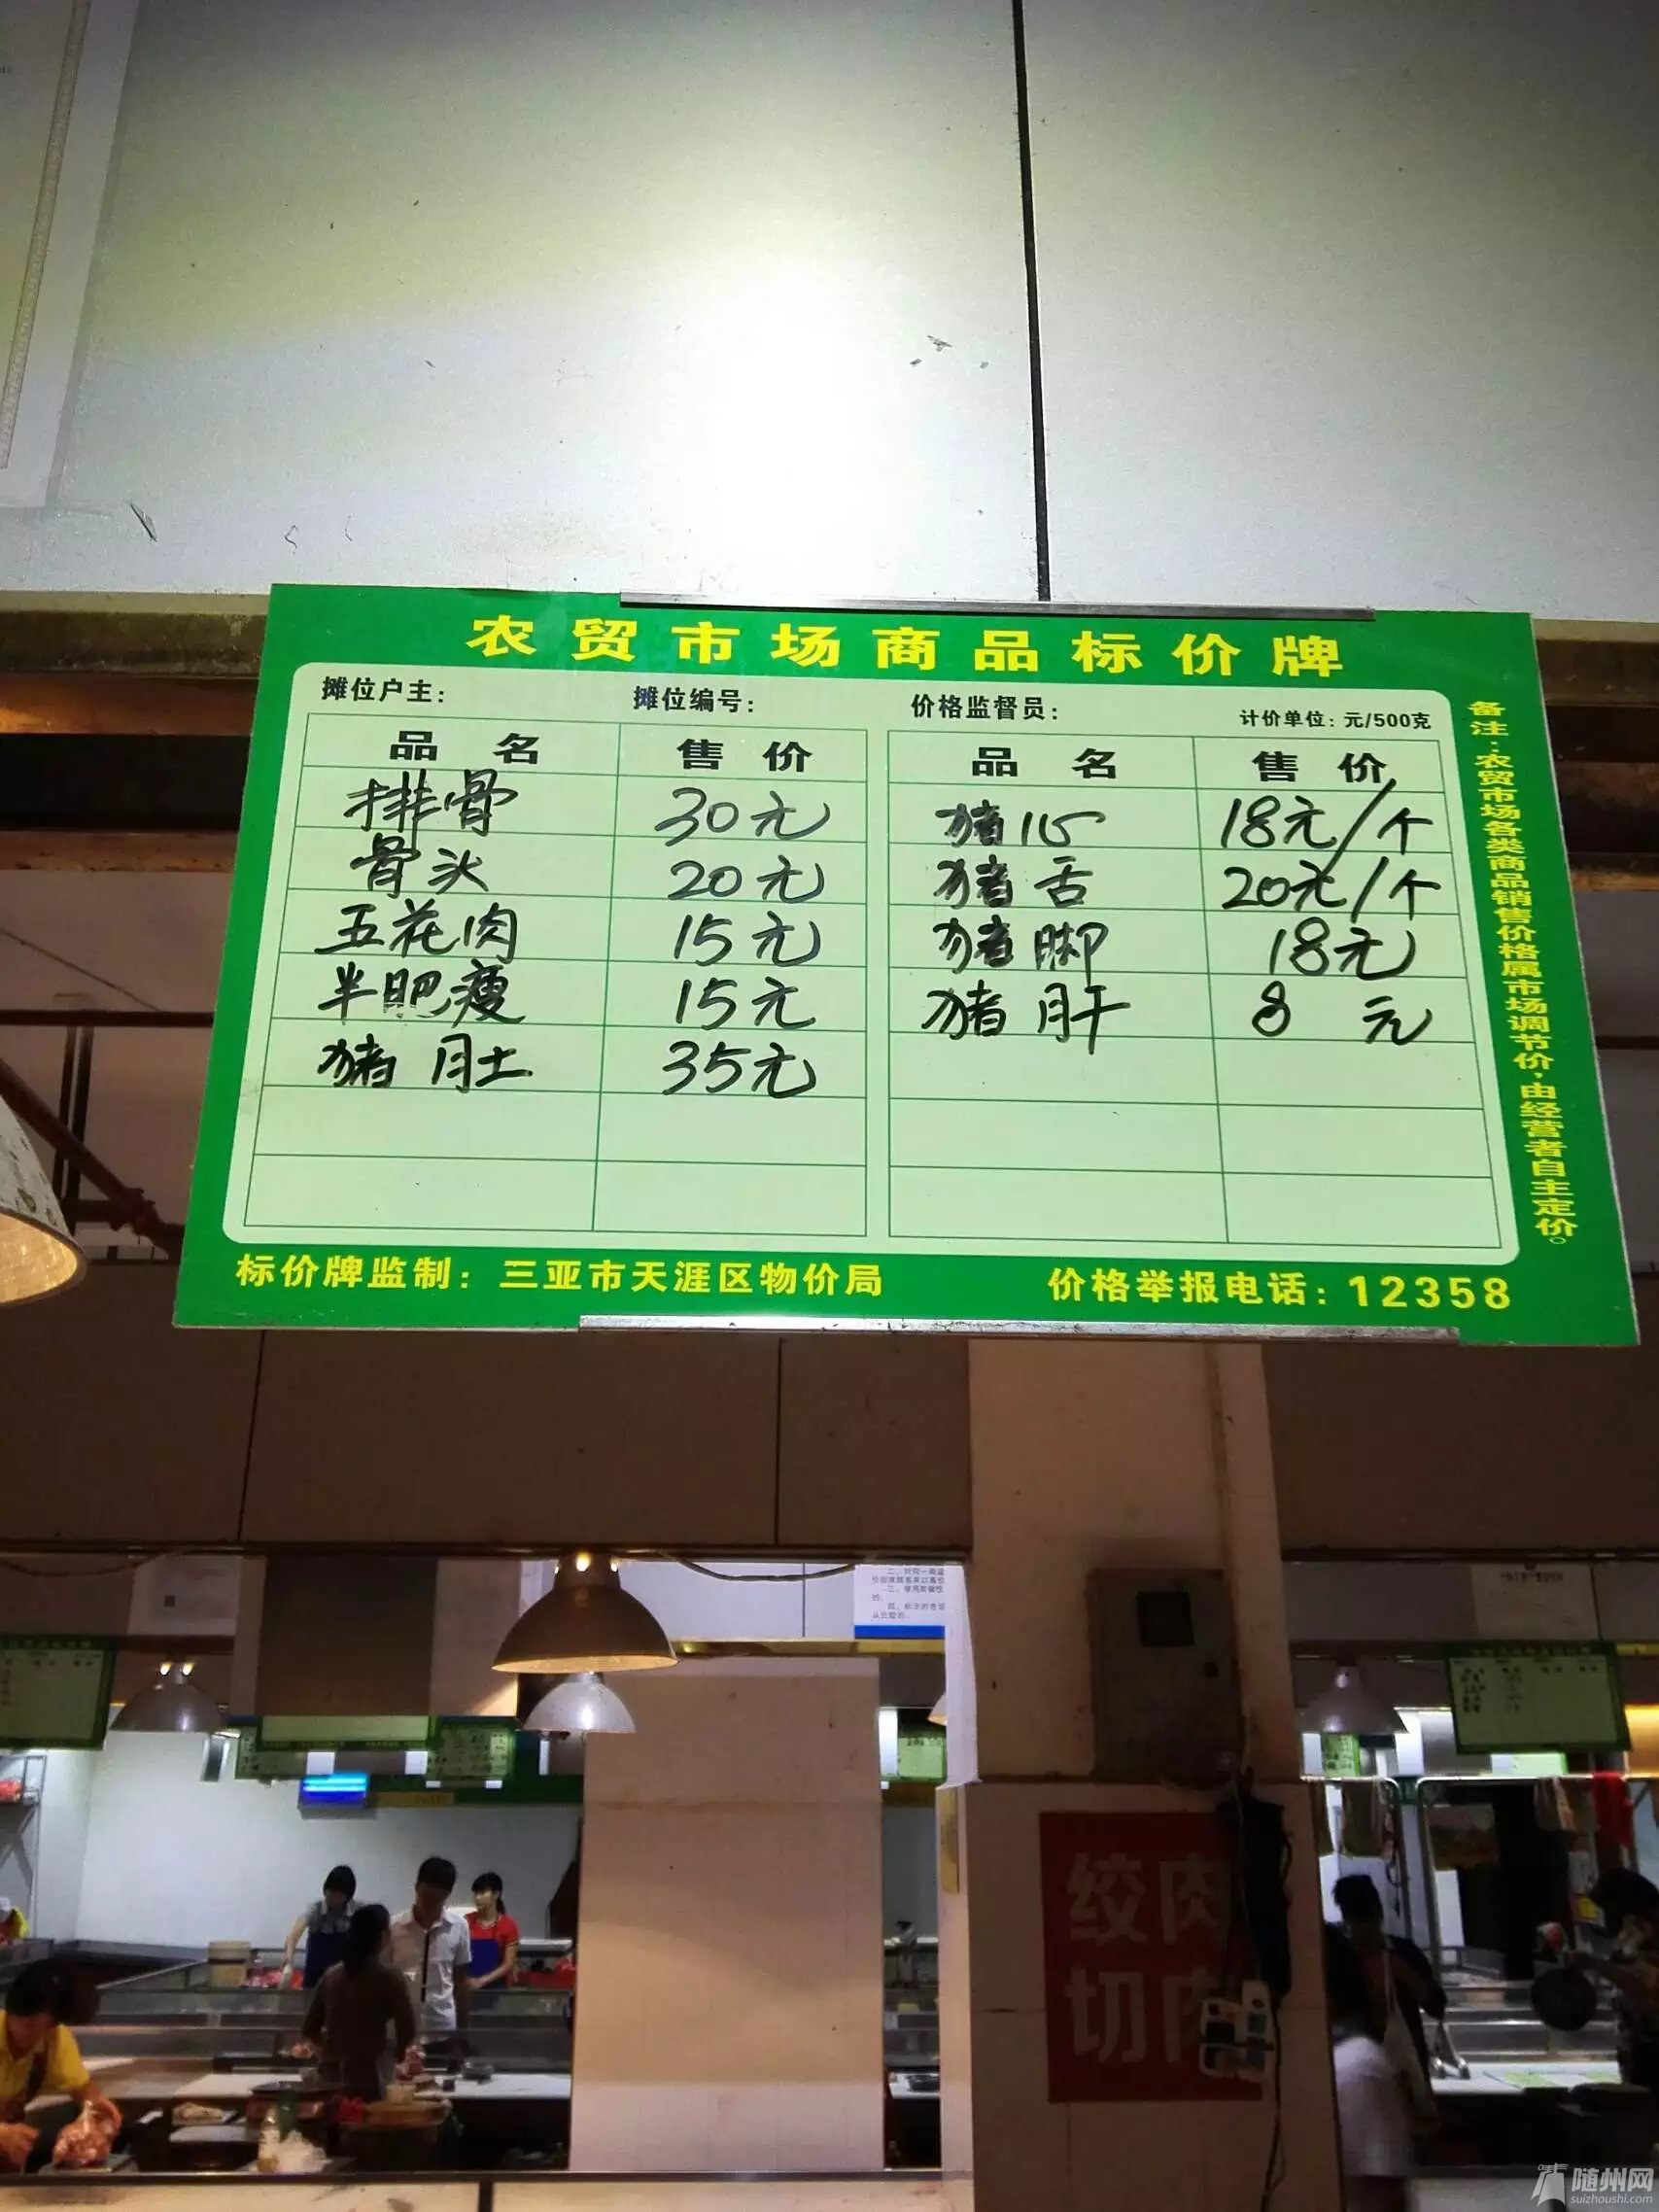 农贸市场商品标价牌
摊位户主： 摊位编号： 价格监督员： 计价单位：元/500克
品名 售价 品名 售价
排骨 30元 猪心 18元/个
骨头 20元 猪舌 20元/个
五花肉 15元 猪脚 18元
半肥瘦 15元 猪肝 8元
猪肚 35元
备注：农贸市场各类商品销售价格属市场调节价，由经营者自主定价。
标价牌监制：三亚市天涯区物价局 价格举报电话：12358
绞肉
切肉
随州网
suizhoushi.com